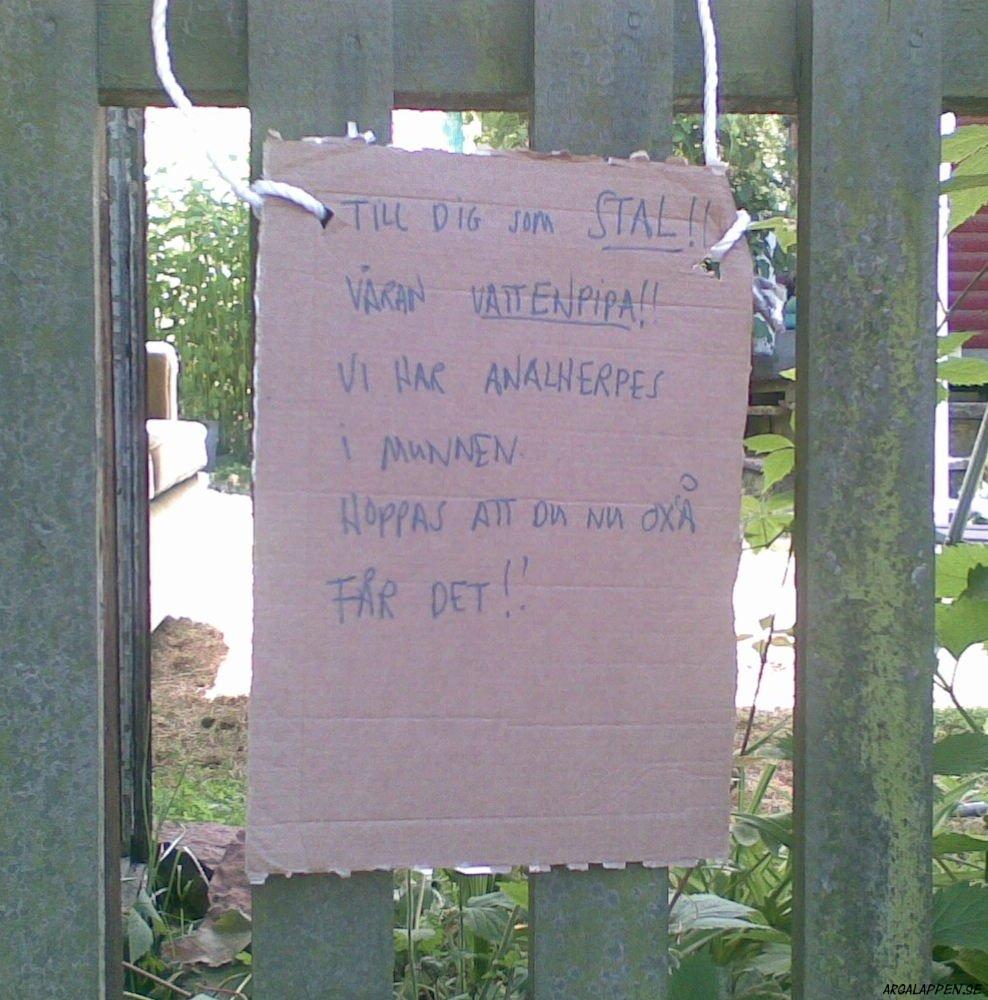 TILL DIG SOM STAL!!
VÅRAN VATTENPIPA!!
VI HAR ANALHERPES
I MUNNEN.
HOPPAS ATT DU NU OXÅ
FÅR DET!!
ARGALAPPEN.SE